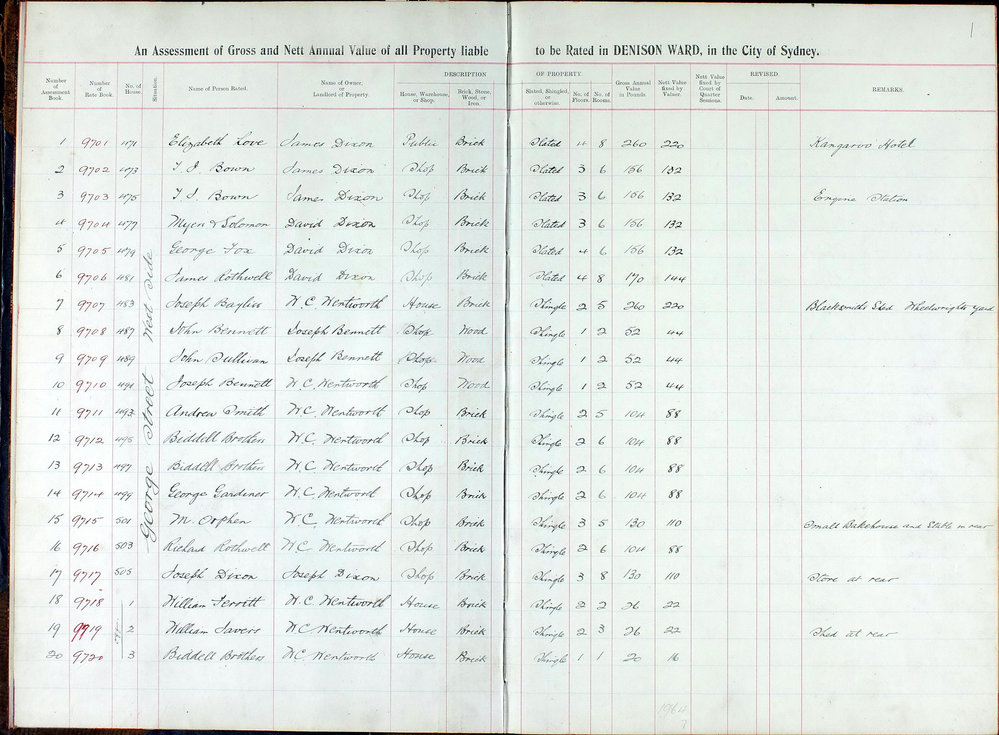 1
An Assessment of Gross and Nett Annual Value of all Property liable to be Rated in DENISON WARD, in the City of Sydney.
Number of Assessment Book. Number of Rate Book. No. of House. Situation. Name of Person Rated. Name of Owner, or Landlord of Property. DESCRIPTION OF PROPERTY. House, Warehouse, or Shop. Brick, Stone, Wood, or Iron. Slated, Shingled, or otherwise. No. of Floors. No. of Rooms. Gross Annual Value in Pounds. Nett Value fixed by Valuer. Nett Value fixed by Court of Quarter Sessions. REVISED. Date. Amount. REMARKS.
George Street West Side
1 9701 471 Elizabeth Love James Dixon Public Brick Slated 4 8 260 220 Kangaroo Hotel
2 9702 473 T. J. Bown James Dixon Shop Brick Slated 3 6 156 132
3 9703 475 T. J. Bown James Dixon Shop Brick Slated 3 6 156 132 Engine Station
4 9704 477 Myer & Solomon David Dixon Shop Brick Slated 3 6 156 132
5 9705 479 George Fox David Dixon Shop Brick Slated 4 6 156 132
6 9706 481 James Rothwell David Dixon Shop Brick Slated 4 8 170 144
7 9707 483 Joseph W. C. Wentworth House Brick Shingle 2 5 260 220 Blacksmiths Shed Wheelwrights yard
8 9708 487 John Bennett Joseph Bennett Shop Wood Shingle 1 2 52 44
9 9709 489 John Sullivan Joseph Bennett Shop Wood Shingle 1 2 52 44
10 9710 491 Joseph Bennett W. C. Wentworth Shop Wood Shingle 1 2 52 44
11 9711 493 Andrew Smith W. C. Wentworth Shop Brick Shingle 2 5 104 88
12 9712 495 Biddell Brothers W. C. Wentworth Shop Brick Shingle 2 6 104 88
13 9713 497 Biddell Brothers W. C. Wentworth Shop Brick Shingle 2 6 104 88
14 9714 499 George Gardiner W. C. Wentworth Shop Brick Shingle 2 6 104 88
15 9715 501 M. Orphen W. C. Wentworth Shop Brick Shingle 3 5 130 110 Small Bakehouse and Stable in rear
16 9716 503 Richard Rothwell W. C. Wentworth Shop Brick Shingle 2 6 104 88
17 9717 505 Joseph Dixon Joseph Dixon Shop Brick Shingle 3 8 130 110 Store at rear
18 9718 1 William Ferritt W. C. Wentworth House Brick Shingle 2 2 26 22
19 9719 2 William Savers W. C. Wentworth House Brick Shingle 2 3 26 22 Shed at rear
20 9720 3 Biddell Brothers W. C. Wentworth House Brick Shingle 1 1 20 16
1964